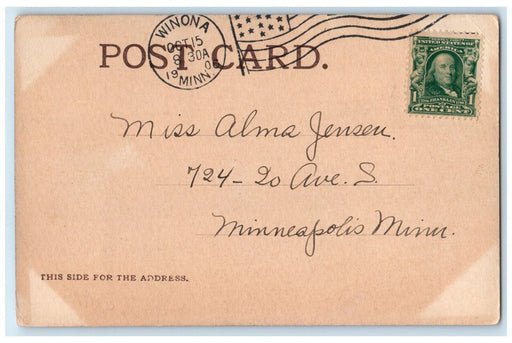 POST CARD.
WINONA
OCT 15
8 30A
1906
MINN.
UNITED STATES OF
AMERICA
1
FRANKLIN
POSTAGE
ONE CENT
Miss Alma Jensen.
724-20 Ave. S.
Minneapolis Minn.
THIS SIDE FOR THE ADDRESS.